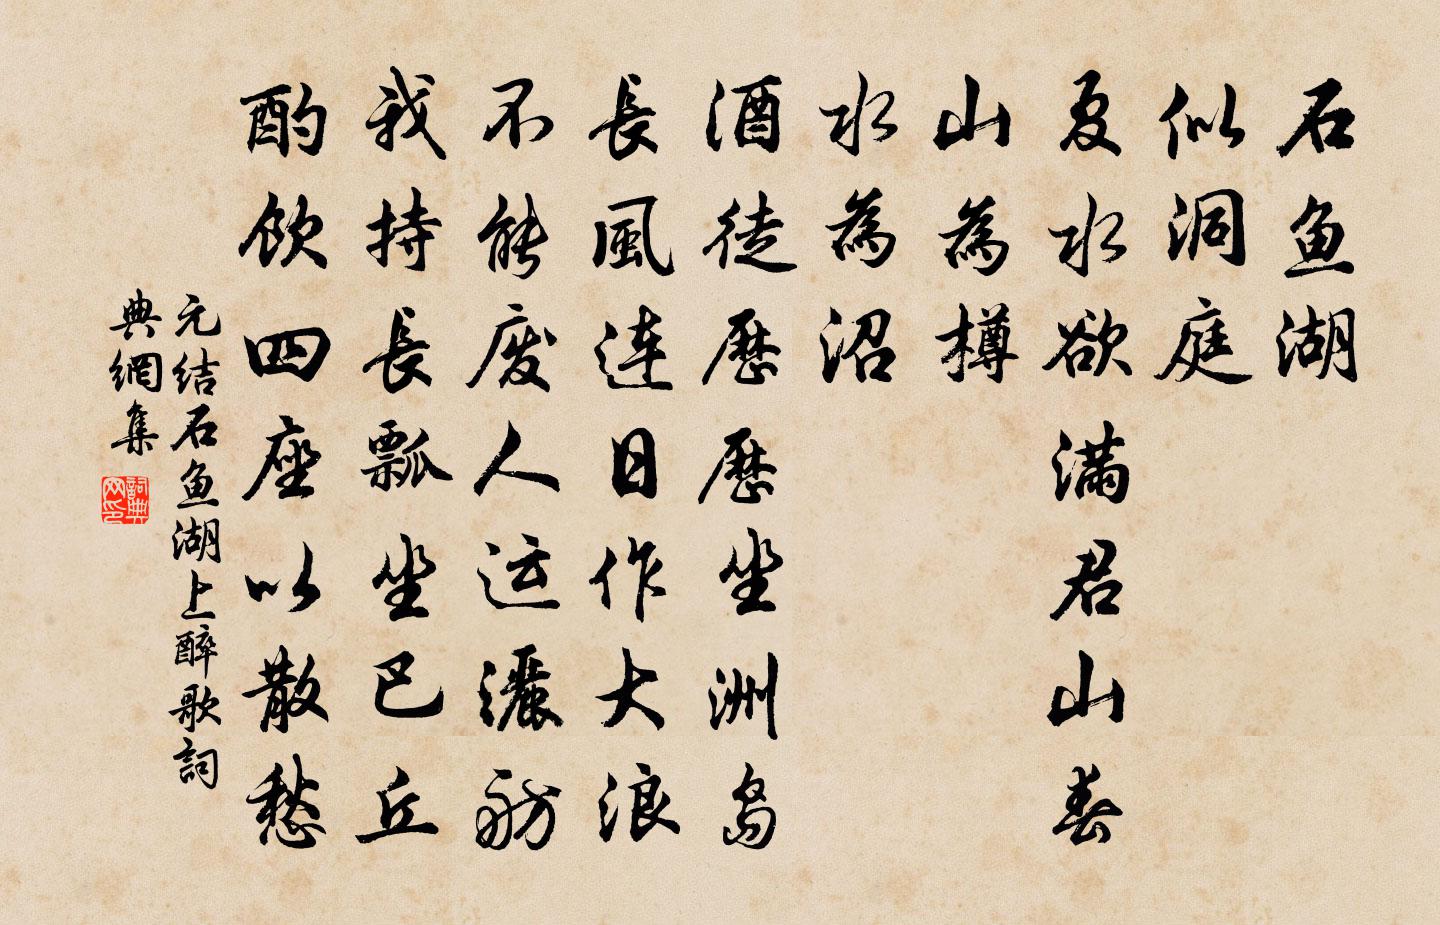 石鱼湖
似洞庭
夏水欲满君山春
山為樽
水為沼
酒徒歷歷坐洲岛
長風连日作大浪
不能废人运灑舫
我持長瓢坐巴丘
酌饮四座以散愁
元结石鱼湖上醉歌詞
典網集
詞典
网印